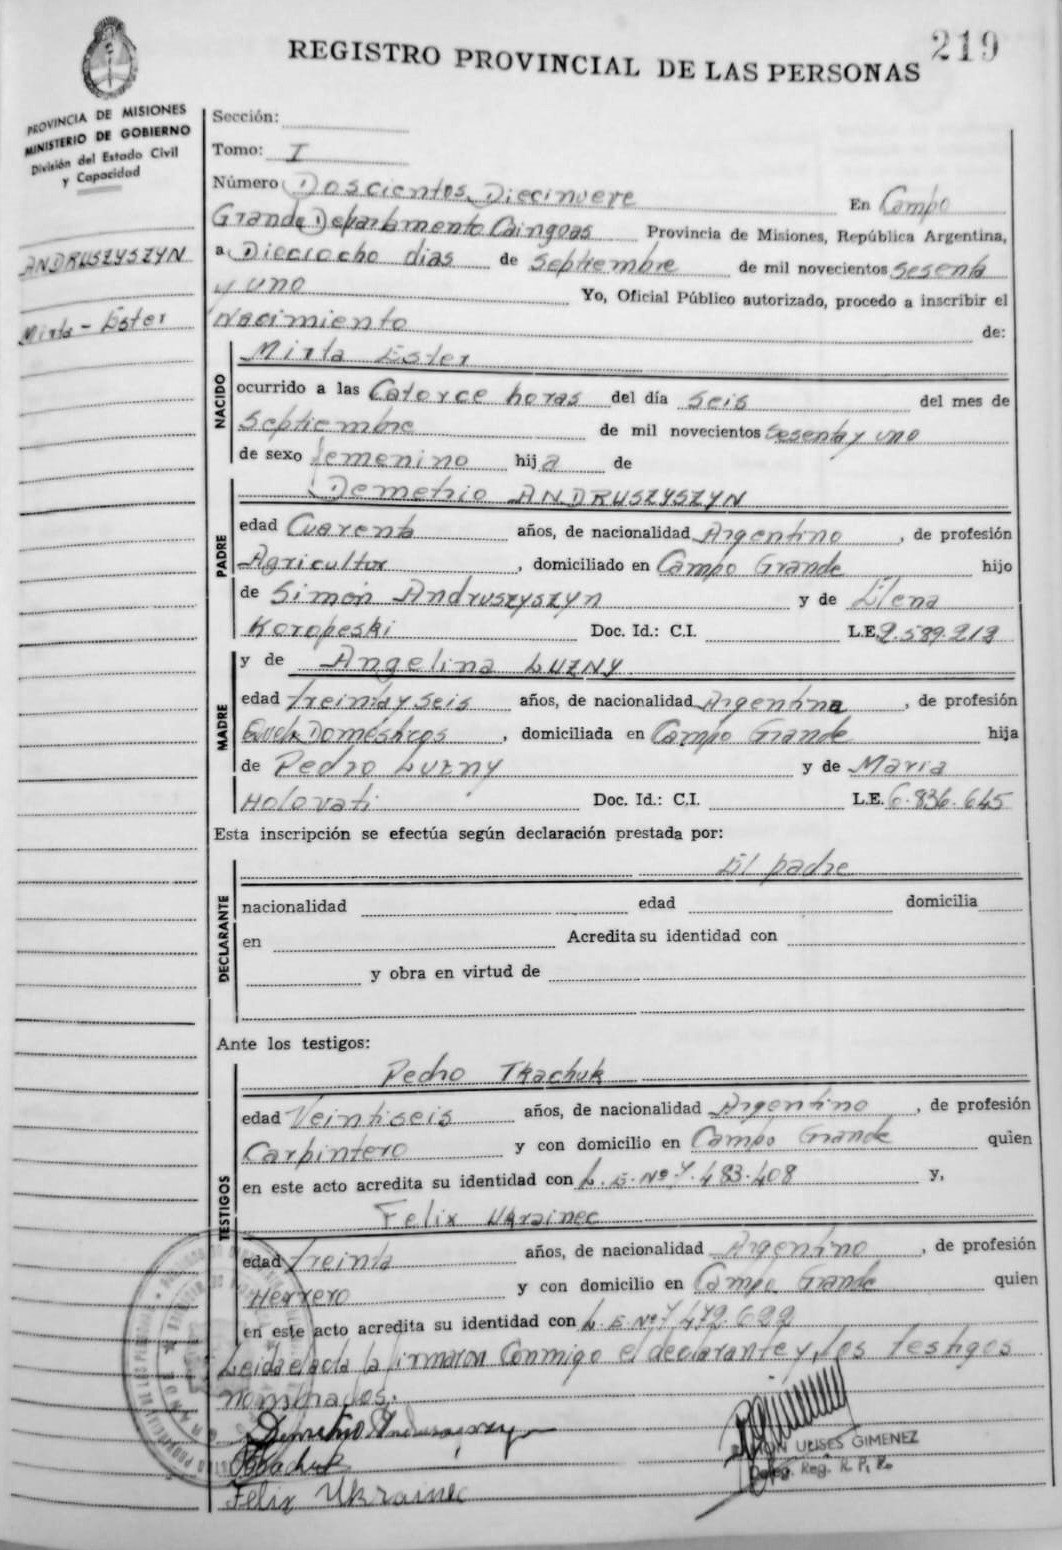 219
REGISTRO PROVINCIAL DE LAS PERSONAS
PROVINCIA DE MISIONES
MINISTERIO DE GOBIERNO
División del Estado Civil
y Capacidad
ANDRUSZYSZYN
Mirta - Ester
Sección:
Tomo: I
Número Doscientos Diecinueve En Campo
Grande Departamento Caingoas Provincia de Misiones, República Argentina,
a Dieciocho dias de Septiembre de mil novecientos sesenta
y uno Yo, Oficial Público autorizado, procedo a inscribir el
Nacimiento de:
NACIDO
Mirta Ester
ocurrido a las Catorce horas del día Seis del mes de
Septiembre de mil novecientos Sesenta y uno
de sexo femenino hija de
PADRE
Demetrio ANDRUSZYSZYN
edad Cuarenta años, de nacionalidad Argentino, de profesión
Agricultor, domiciliado en Campo Grande hijo
de Simón Andruszyszyn y de Elena
Koropeski Doc. Id.: C.I. L.E. 2.589.212
MADRE
y de Angelina LUZNY
edad treinta y seis años, de nacionalidad Argentina, de profesión
Domésticos, domiciliada en Campo Grande hija
de Pedro Luzny y de Maria
Holovati Doc. Id.: C.I. L.E. 6.836.645
Esta inscripción se efectúa según declaración prestada por:
DECLARANTE
El padre
nacionalidad edad domicilia
en Acredita su identidad con
y obra en virtud de
Ante los testigos:
TESTIGOS
Pedro Tkachuk
edad Veintiseis años, de nacionalidad Argentino, de profesión
Carpintero y con domicilio en Campo Grande quien
en este acto acredita su identidad con L.E. Nº 7.483.408 y,
Felix Ukrainec
edad treinta años, de nacionalidad Argentino, de profesión
Herrero y con domicilio en Campo Grande quien
en este acto acredita su identidad con L.E. Nº 7.472.622
Leida el acta la firmaron conmigo el declarante y los testigos
nombrados.
Felix Ukrainec
ULISES GIMENEZ
Deleg. Reg. R. P. P.